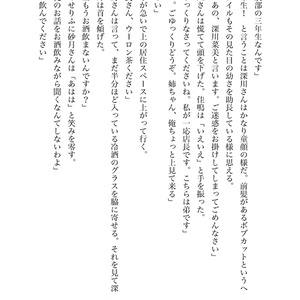 部の三年生なんです」
生！　と言うことは深川さんはかなり童顔の様だ。前髪があるボブカットというヘ
イルもその見た目の幼さを助長している様に思える。
あの、深川菜美と言います。ご迷惑をお掛けしてしまってごめんなさい」
さんは慌てて頭を下げた。佳鳴は「いえいえ」と手を振った。
っくりなさってくださいね。私が一応店長です。こちらは弟です」
。ごゆっくりどうぞ。姉ちゃん、俺ちょっと上見て来る」
が急いで上の居住スペースに上がって行く。
さん、ウーロン茶ください」
さんは言って、まだ半分ほど入っている冷酒のグラスを脇に寄せる。それを見て深
は首を傾げた。
もうお酒飲まないんですか？」
せりふに砂月さんは「あはは」と笑みを零す。
のお話をお酒飲みながら聞くなんてしないわよ」
飲んでください」